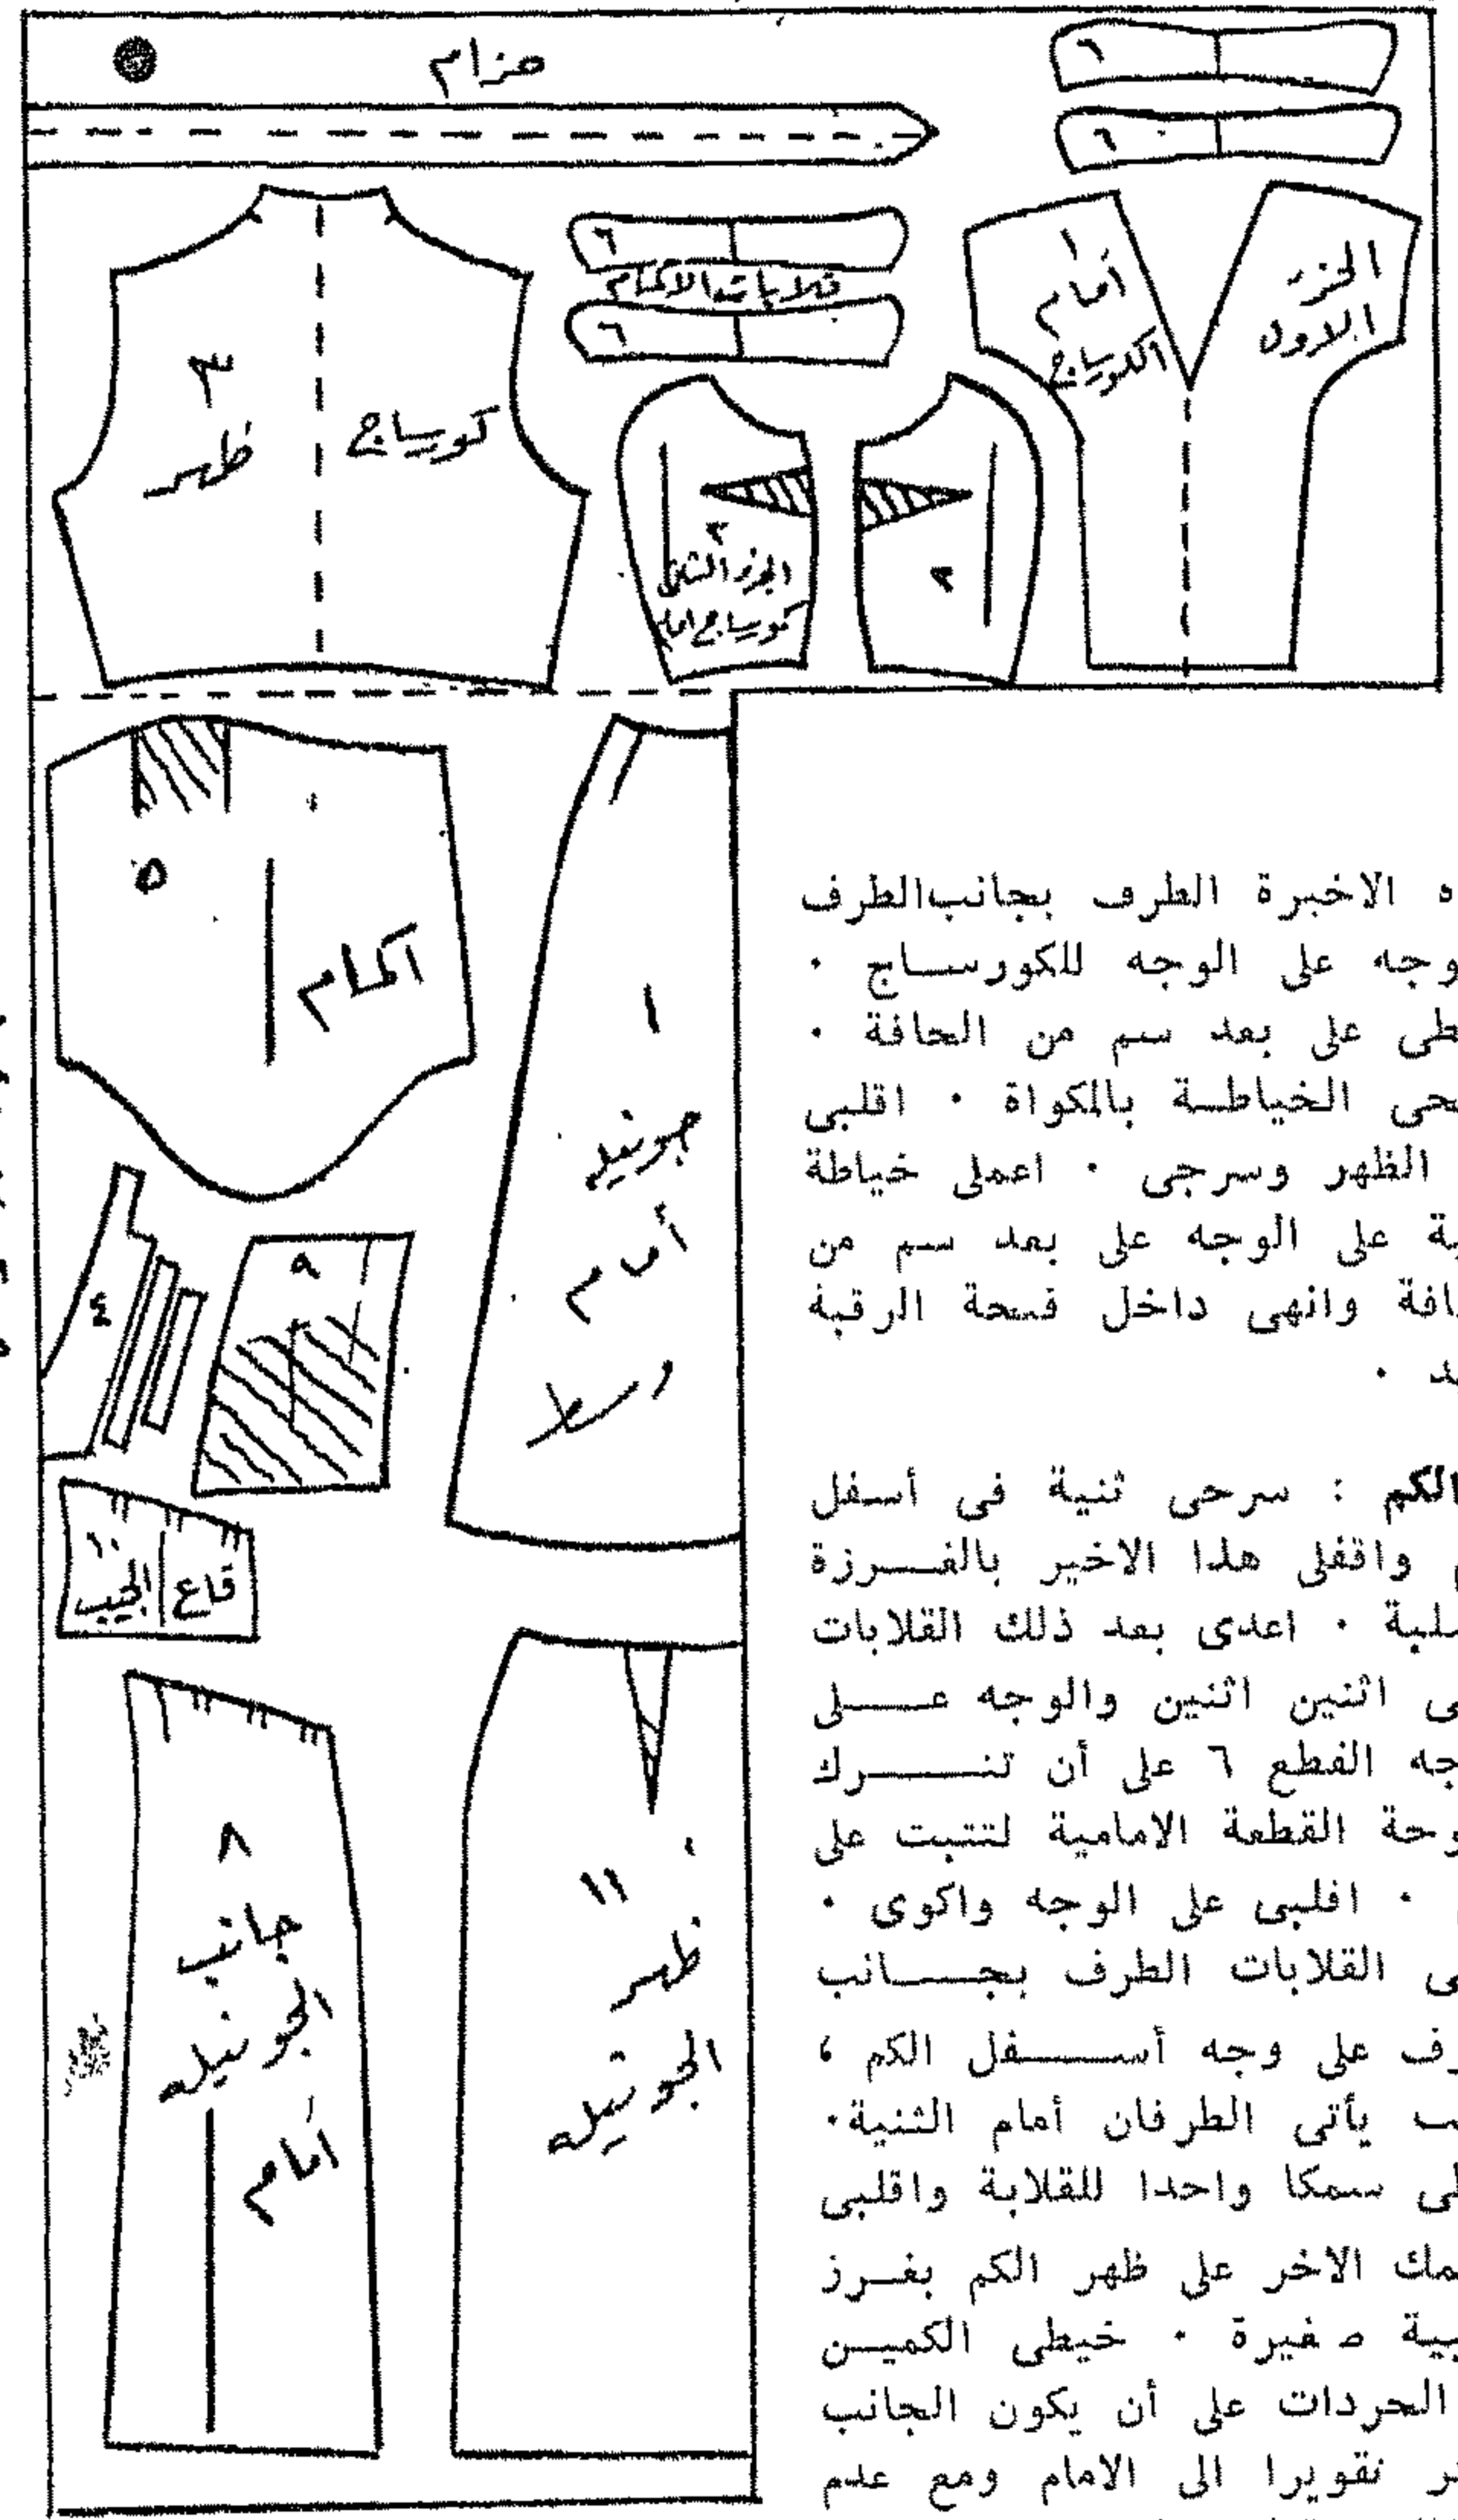 حزام
٦
٦
٦
قلابات الاكمام
٦
الجزء
الاول
١
أمام
الكورساج
٣
ظهر
كورساج
٢
الجزء الثانى
كورساج امام
٢
٥
اكمام
١
جونيله
أمام
وسط
٤
٩
١٠
قاع الجيب
٨
جانب
الجونيله
امام
١١
ظهر
الجونيله
ه الاخيرة الطرف بجانب الطرف
وجه على الوجه للكورساج ·
طى على بعد سم من الحافة ·
حى الخياطة بالمكواة · اقلبى
الظهر وسرجى · اعملى خياطة
ية على الوجه على بعد سم من
افة وانهى داخل فتحة الرقبة
د ·
الكم : سرحى ثنية فى أسفل
واقفلى هذا الاخير بالغرزة
سلية · اعدى بعد ذلك القلابات
ى اثنين اثنين والوجه على
جه القطع ٦ على أن تترك
وحة القطعة الامامية لتتبت على
· اقلبى على الوجه واكوى ·
ى القلابات الطرف بجانب
رف على وجه أسفل الكم ،
ب يأتى الطرفان أمام الثنية·
طى سمكا واحدا للقلابة واقلبى
مك الاخر على ظهر الكم بغرز
بية صغيرة · خيطى الكمين
الحردات على أن يكون الجانب
ر تقويرا الى الامام ومع عدم